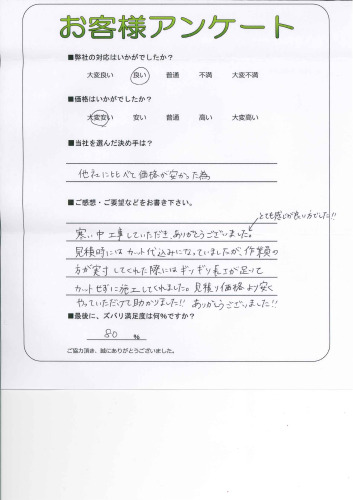 お客様アンケート
■弊社の対応はいかがでしたか?
大変良い 良い 普通 不満 大変不満
■価格はいかがでしたか?
大変安い 安い 普通 高い 大変高い
■当社を選んだ決め手は?
他社に比べて価格が安かった為
■ご感想・ご要望などをお書き下さい。
とても感じが良い方でした!!
寒い中工事していただき、ありがとうございました。
見積時にはカット代込みになっていましたが、作業員の
方が実寸してくれた際にはギリギリ長さが足りて
カットせずに施工してくれました。見積り価格より安く
やっていただけて助かりました!! ありがとうございました!!
■最後に、ズバリ満足度は何%ですか?
80 %
ご協力頂き、誠にありがとうございました。